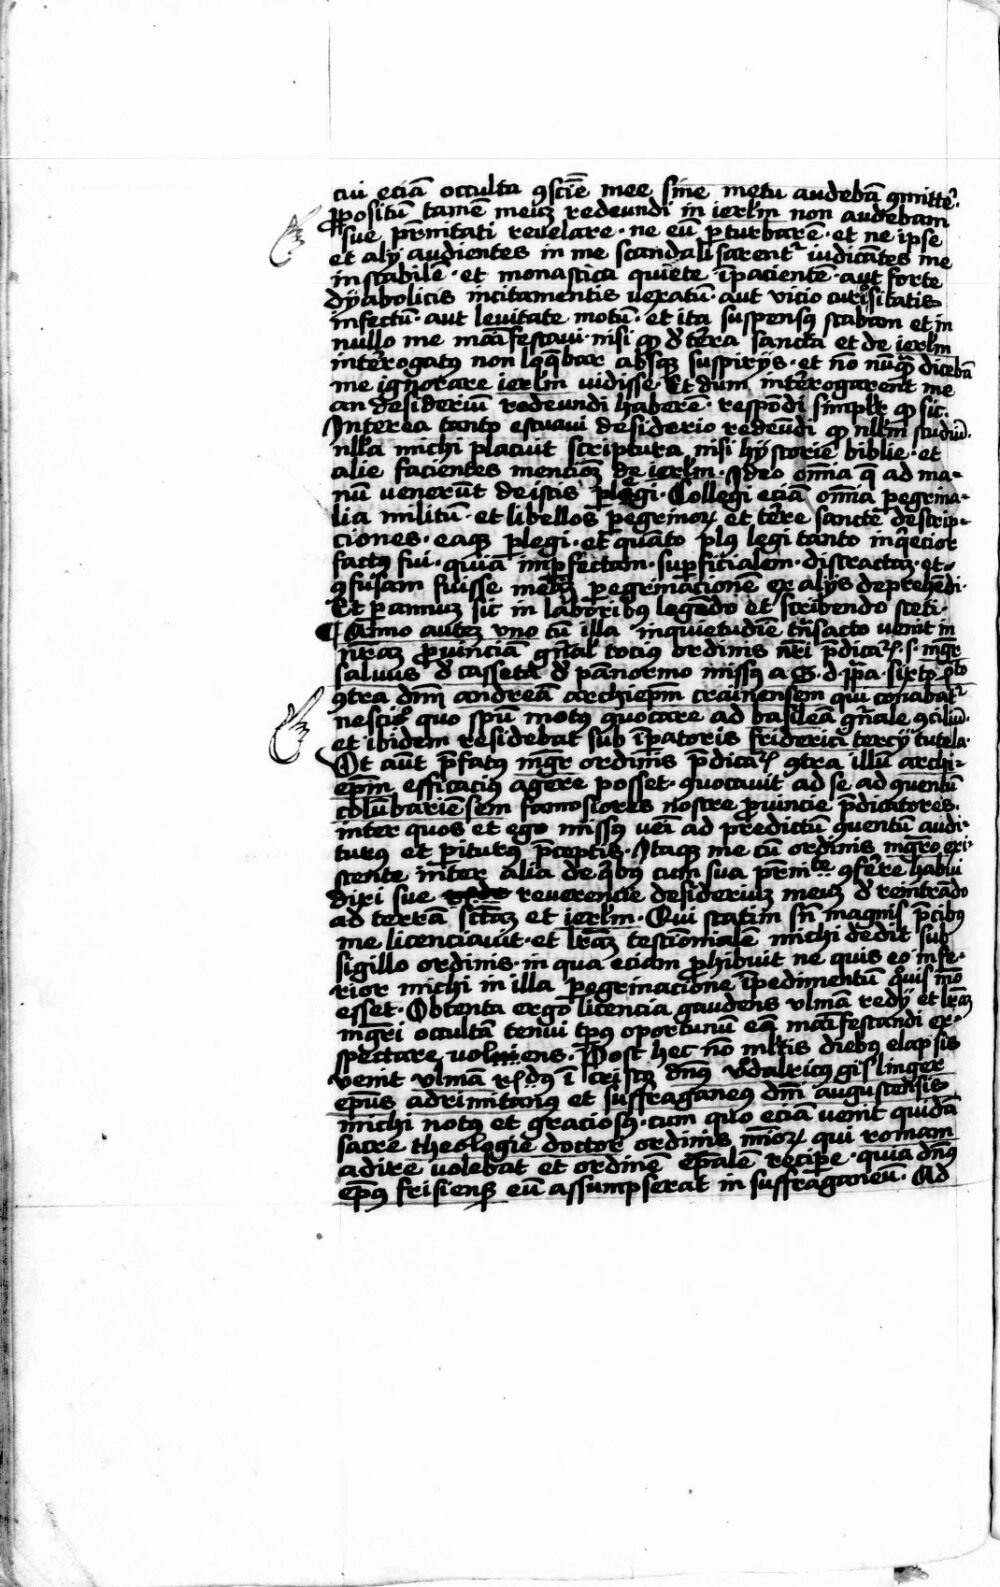 cui eciā occulta ꝯsciē͞e mee sine metu audebā ꝯmitte͛.
ꝓpositū tamē meuꝫ redeundi in ierl̄m non audebam
sue pr̄nitati reuelare · ne eū ꝑturbarē · et ne ipse
et alij audientes in me scandalisarentᷣ iudicātes me
instabilē · et monastica quiete īpacientē · aut forte
dyabolicis incitamentis uexatū · aut vicio curiositatis
infectū · aut leuitate motū · et ita suspensꝰ stabam et in
nullo me māifestaui · nisi ꝙ d̄ terra sancta et de ierl̄m
interrogatꝰ non loq̄bar absqꝫ suspirijs · et nō nūqᷓ dicebā
me ignorare ierl̄m uidisse. Et dum interrogarent me
an desideriū redeundi haberē · respōdi simplr̄ ꝙ sic.
Interea tanto estuaui desiderio redeūdi ꝙ nllm̄ studiū.
nlla michi placuit scriptura nisi hystorie biblie · et
alie facientes mencioꝫ de ierl̄m. Ideo om̄ia q̄ ad ma-
nū venerūt de istis ꝑlegi. Collegi eciā om̄ia peregrina-
lia militū · et libellos peregrinoꝝ et terre sancte descrip-
ciones · eaqꝫ ꝑlegi · et quāto plꝰ legi tanto inq̄ecior
factꝰ fui · quiā imꝑfectam · suꝑficialem · distractaꝫ · et
ꝯfusam fuisse meāꝫ peregrinacionē ex alijs deprehēdi ·
Et ꝑ annuꝫ sic in laboribꝰ legēdo et scribendo steti ·
¶ Anno auteꝫ vno cū illa inquietudīe tn̄sacto venit in
nr̄aꝫ ꝓuinciam gn̄al tocius ordinis nr̄i p̄dicaꝝ · s · mgr̄
saluus d̄ cassetta d̄ panormo missꝰ a S. d. p̄pa · sixto ꝗto
ꝯtra dm̄ andreā archiepm̄ crainensem qui conabatᷣ
nescio quo spū motꝰ ꝯuocare ad basileā gn̄ale ꝯciliū ·
et ibidem residebat sub īperatoris friderici tercij tutela ·
Vt aut p̄fatꝰ mgr̄ ordinis p̄dicaꝝ ꝯtra illū archi-
epm̄ efficaciꝰ agere posset · ꝯuocauit ad se ad ꝯuentū
colūbariēsem famosiores nostre ꝓuincie p̄dicatores ·
inter quos et ego missꝰ veī ad predictū ꝯuentū audi-
turꝰ et ꝑiturꝰ p̄ceptis. Itaqꝫ me cū ordinis mgr̄o exi-
stente inter alia de q̄bꝰ cum sua pr̄nitate ꝯferre habui
dixi sue reuerencie desideriuꝫ meuꝫ d̄ reintrādo
ad terrā sctāꝫ et ierl̄m. Qui statim sn̄ magnis p̄cibꝰ
me licenciauit · et lr̄aꝫ testimonialē michi dedit sub
sigillo ordinis · in qua eciam ꝓhibuit ne quis eo infe-
rior michi in illa peregrinacione īpedimentū qͦuis mō
esset. Obtenta ergo licencia gaudens vlmā redij et lr̄aꝫ
mgr̄i occultā tenui tp̄us oportunū eā māifestandi ex-
spectare volens. Post hec nō ml̄tis diebꝰ elapsis
venit vlmā rꝫ.dꝰ ī cristo dn̄s vͦdalricꝰ gislinger
epūs adrimitanꝰ et suffraganeꝰ dn̄i augustensis
michi notꝰ et graciosꝰ · cum quo eciā venit quidā
sacre theologie doctor ordinis mīoꝝ qui romam
adire volebat et ordinē ep̄alē reciꝑe · quia dn̄s
ep̄s frisiensꝫ eū assumpserat in suffraganeū. Ad